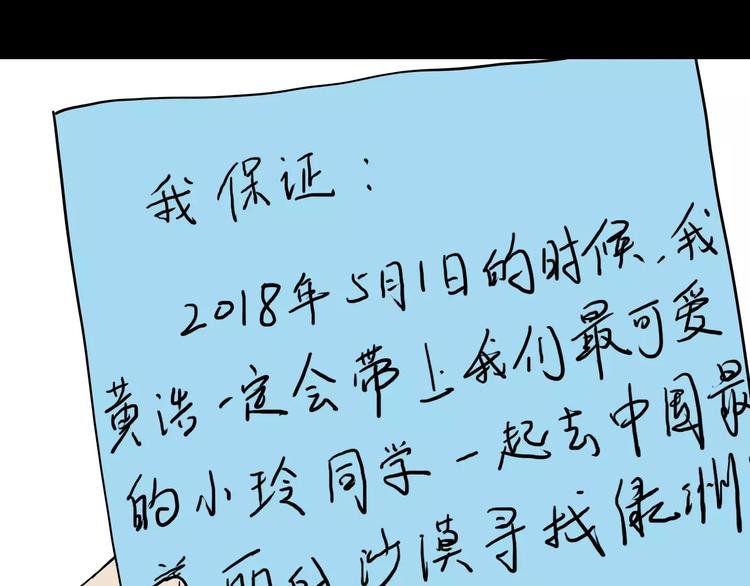 我保证：
2018年5月1日的时候、我
黄浩一定会带上我们最可爱
的小玲同学一起去中国最
美丽的沙漠寻找绿洲